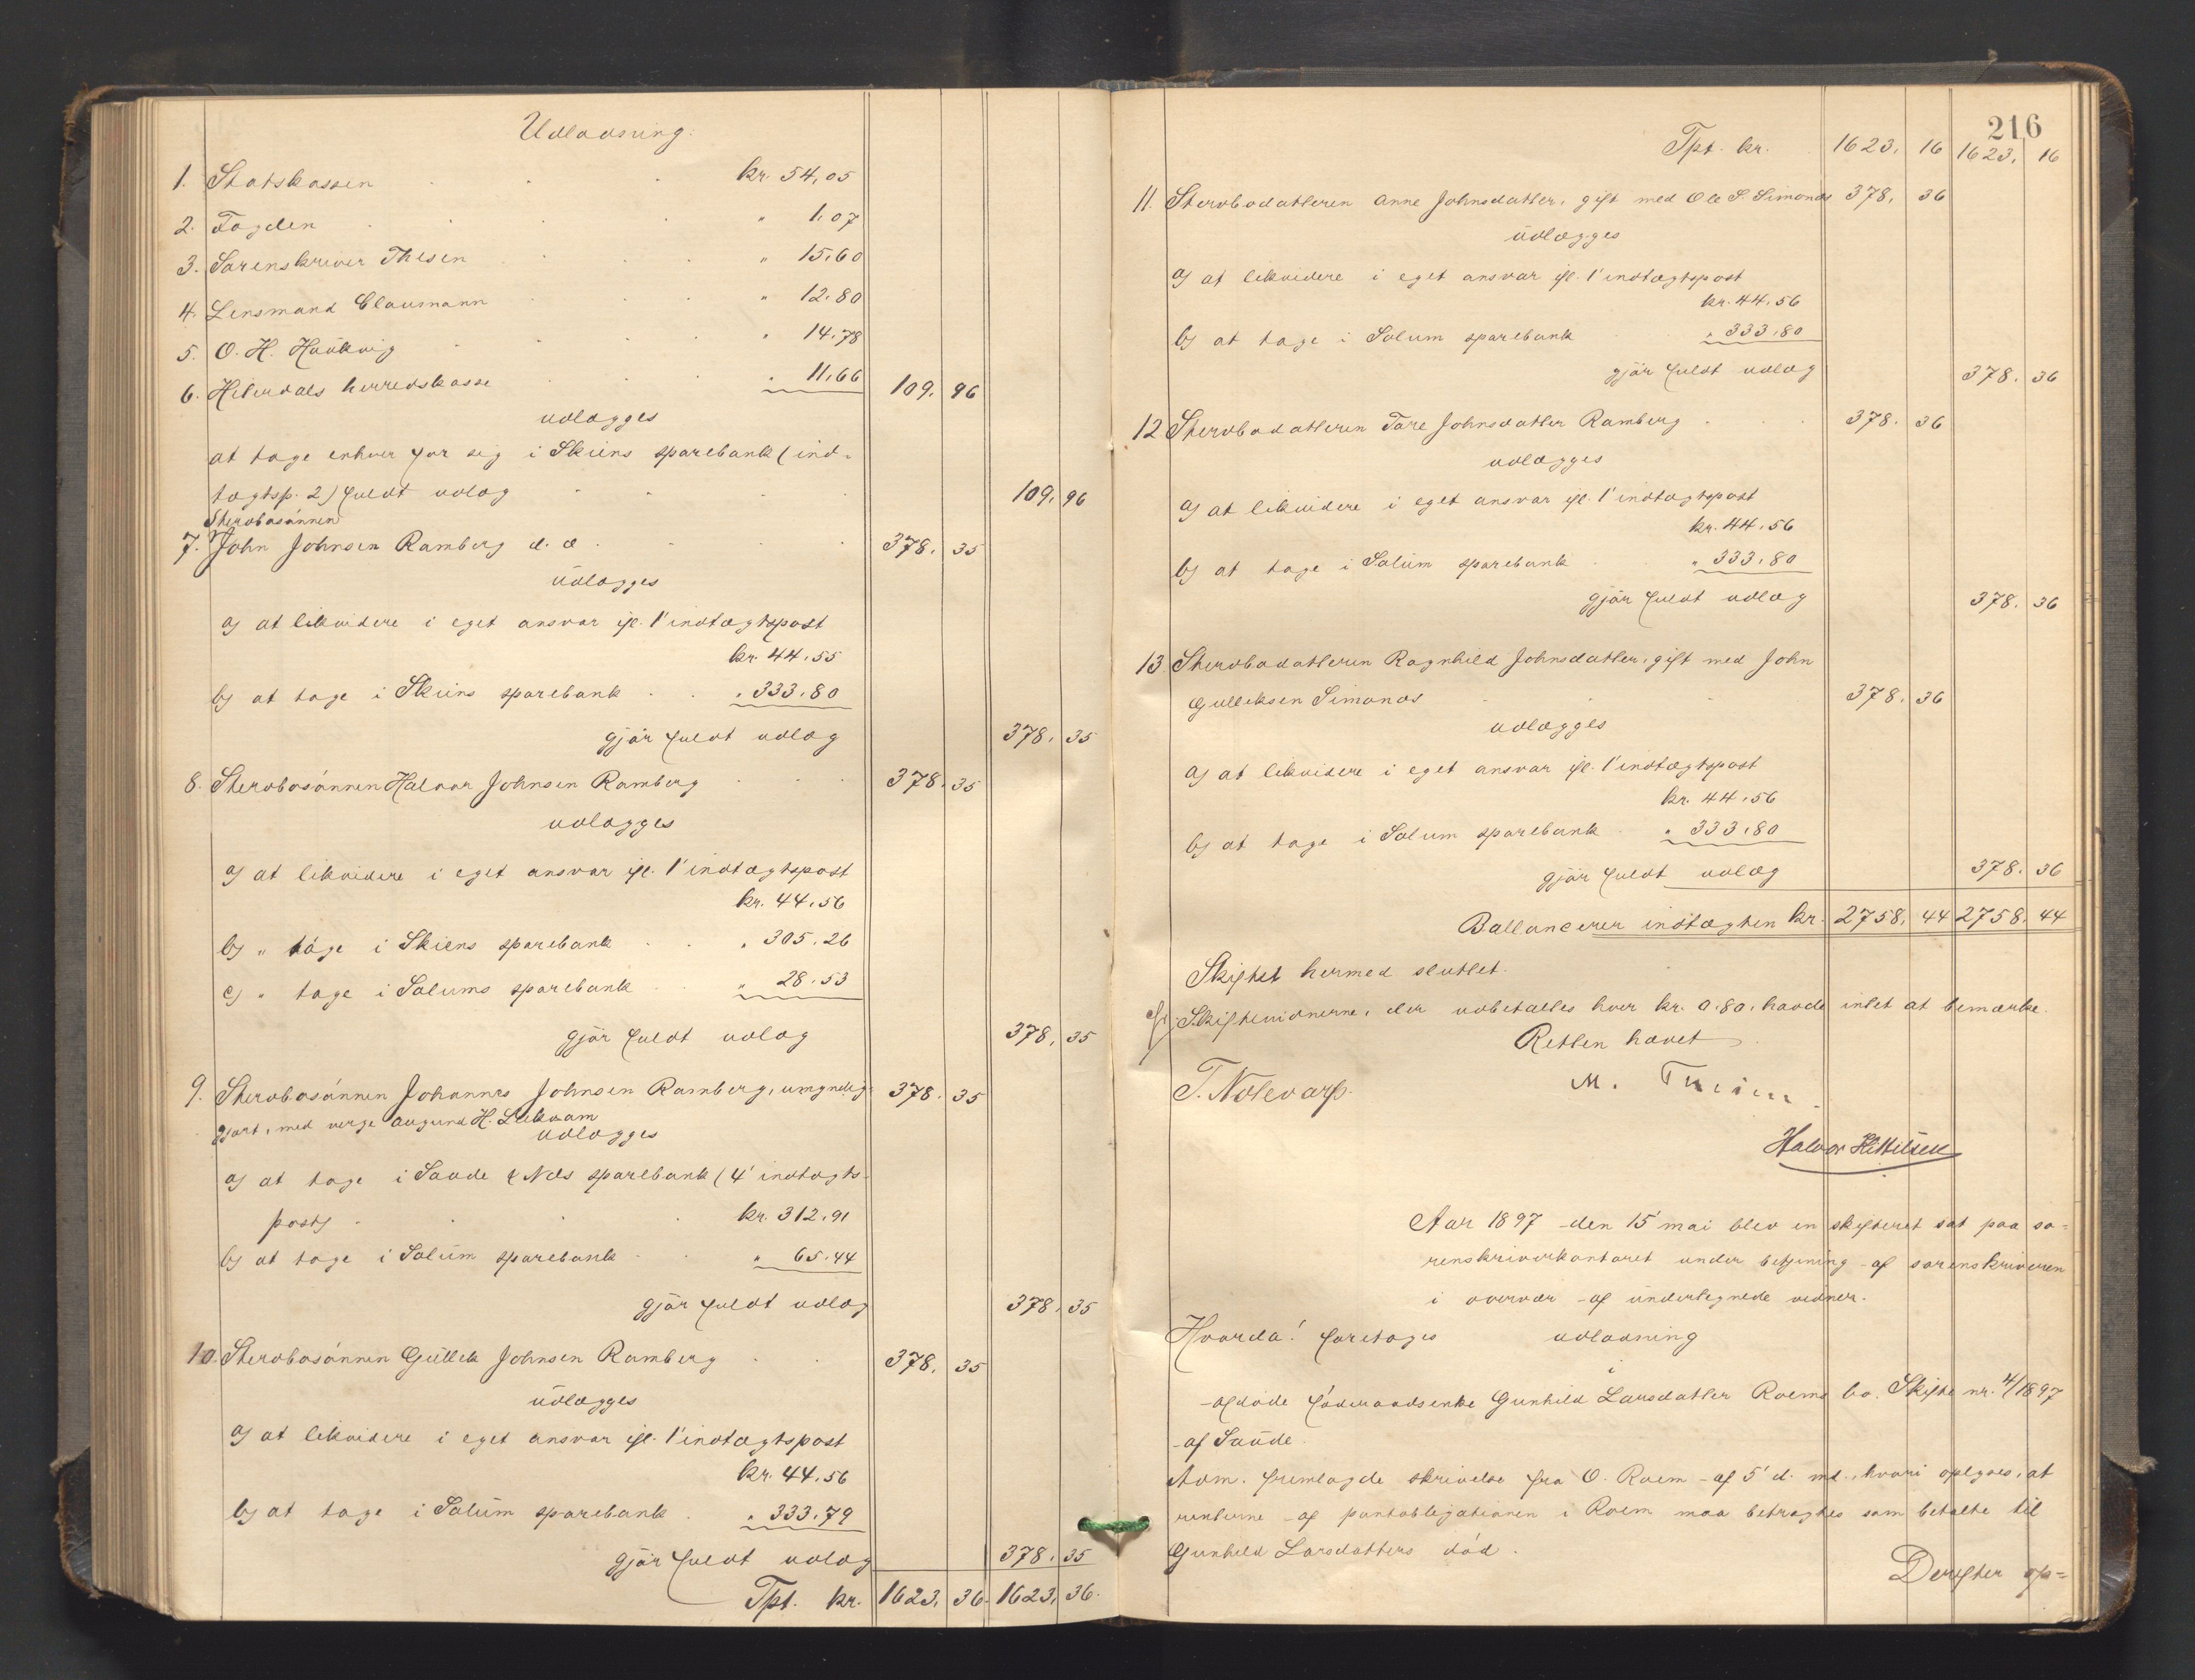 Udlodning.
1. Statskassen kr. 54,05
2. Fogden " 1,07
3. Sorenskriver Thesen " 15,60
4. Lensmand Clausmann " 12,80
5. O. H. Haukvig " 14,78
6. Hiterdals herredskasse " 11,66 109, 96
udlægges
at tage enhver for seg i Skiens sparebank (ind-
tægtsp. 2) fuldt udlæg 109, 96
Stervbosönnen
7. John Johnsen Ramberg d. æ. 378, 35
udlægges
a) at likvidere i eget ansvar ifl. 1' indtægtspost
kr. 44,55
b) at tage i Skiens sparebank " 333,80
gjör fuldt udlæg 378, 35
8. Stervbosönnen Halvor Johnsen Ramberg 378, 35
udlægges
a) at likvidere i eget ansvar ifl. 1' indtægtspost
kr. 44,56
b) " tage i Skiens sparebank " 305,26
c) " tage i Solums sparebank " 28,53
gjör fuldt udlæg 378, 35
9. Stervbosönnen Johannes Johnsen Ramberg, umyndig-
gjort, med verge Augund H. Lekvam 378, 35
udlægges
a) at tage i Saude & Nes sparebank (4' indtægts-
post) kr. 312,91
b) at tage i Solum sparebank " 65,44
gjör fuldt udlæg 378, 35
10. Stervbosönnen Gullek Johnsen Ramberg 378, 35
udlægges
a) at likvidere i eget ansvar ifl. 1' indtægtspost
kr. 44,56
b) at tage i Solum sparebank " 333,79
gjör fuldt udlæg 378, 35
Tpt. kr. 1623, 36. 1623, 36.
216
Tpt. kr. 1623, 16 1623, 16
11. Stervbodatteren Anne Johnsdatter, gift med Ole S. Simonds 378, 36
udlægges
a) at likvidere i eget ansvar ifl. 1' indtægtspost
kr. 44,56
b) at tage i Solum sparebank " 333,80
gjör fuldt udlæg 378, 36
12 Stervbodatteren Tore Johnsdatter Ramberg 378, 36
udlægges
a) at likvidere i eget ansvar ifl. 1' indtægtspost
kr. 44,56
b) at tage i Solum sparebank " 333,80
gjör fuldt udlæg 378, 36
13. Stervbodatteren Ragnhild Johnsdatter, gift med John
Gulleksen Simonds 378, 36
udlægges
a) at likvidere i eget ansvar ifl. 1' indtægtspost
kr. 44,56
b) at tage i Solum sparebank " 333,80
gjör fuldt udlæg 378, 36
Ballancerer indtægten kr. 2758, 44 2758, 44
Skiftet hermed sluttet.
Skiftevidnerne, der udbetaltes hver kr. 0,80, havde intet at bemærke.
Retten hævet
T. Notevarp. M.
Halvor Kittilsen
Aar 1897 den 15' mai blev en skifteret sat paa so-
renskriverkontoret under betjening af sorenskriveren
i overvær af undertegnede vidner.
Hvorda: foretoges udlodning
i
afdöde föderaadsenke Gunhild Larsdatter Roems bo. Skifte nr. 4/1897
af Saude.
Adm. fremlagde skrivelse fra O. Roem af 5' d. md., hvori oplyses, at
renterne af pantobligationen i Roem maa betragtes som betalte til
Gunhild Larsdatters död.
Derefter op-